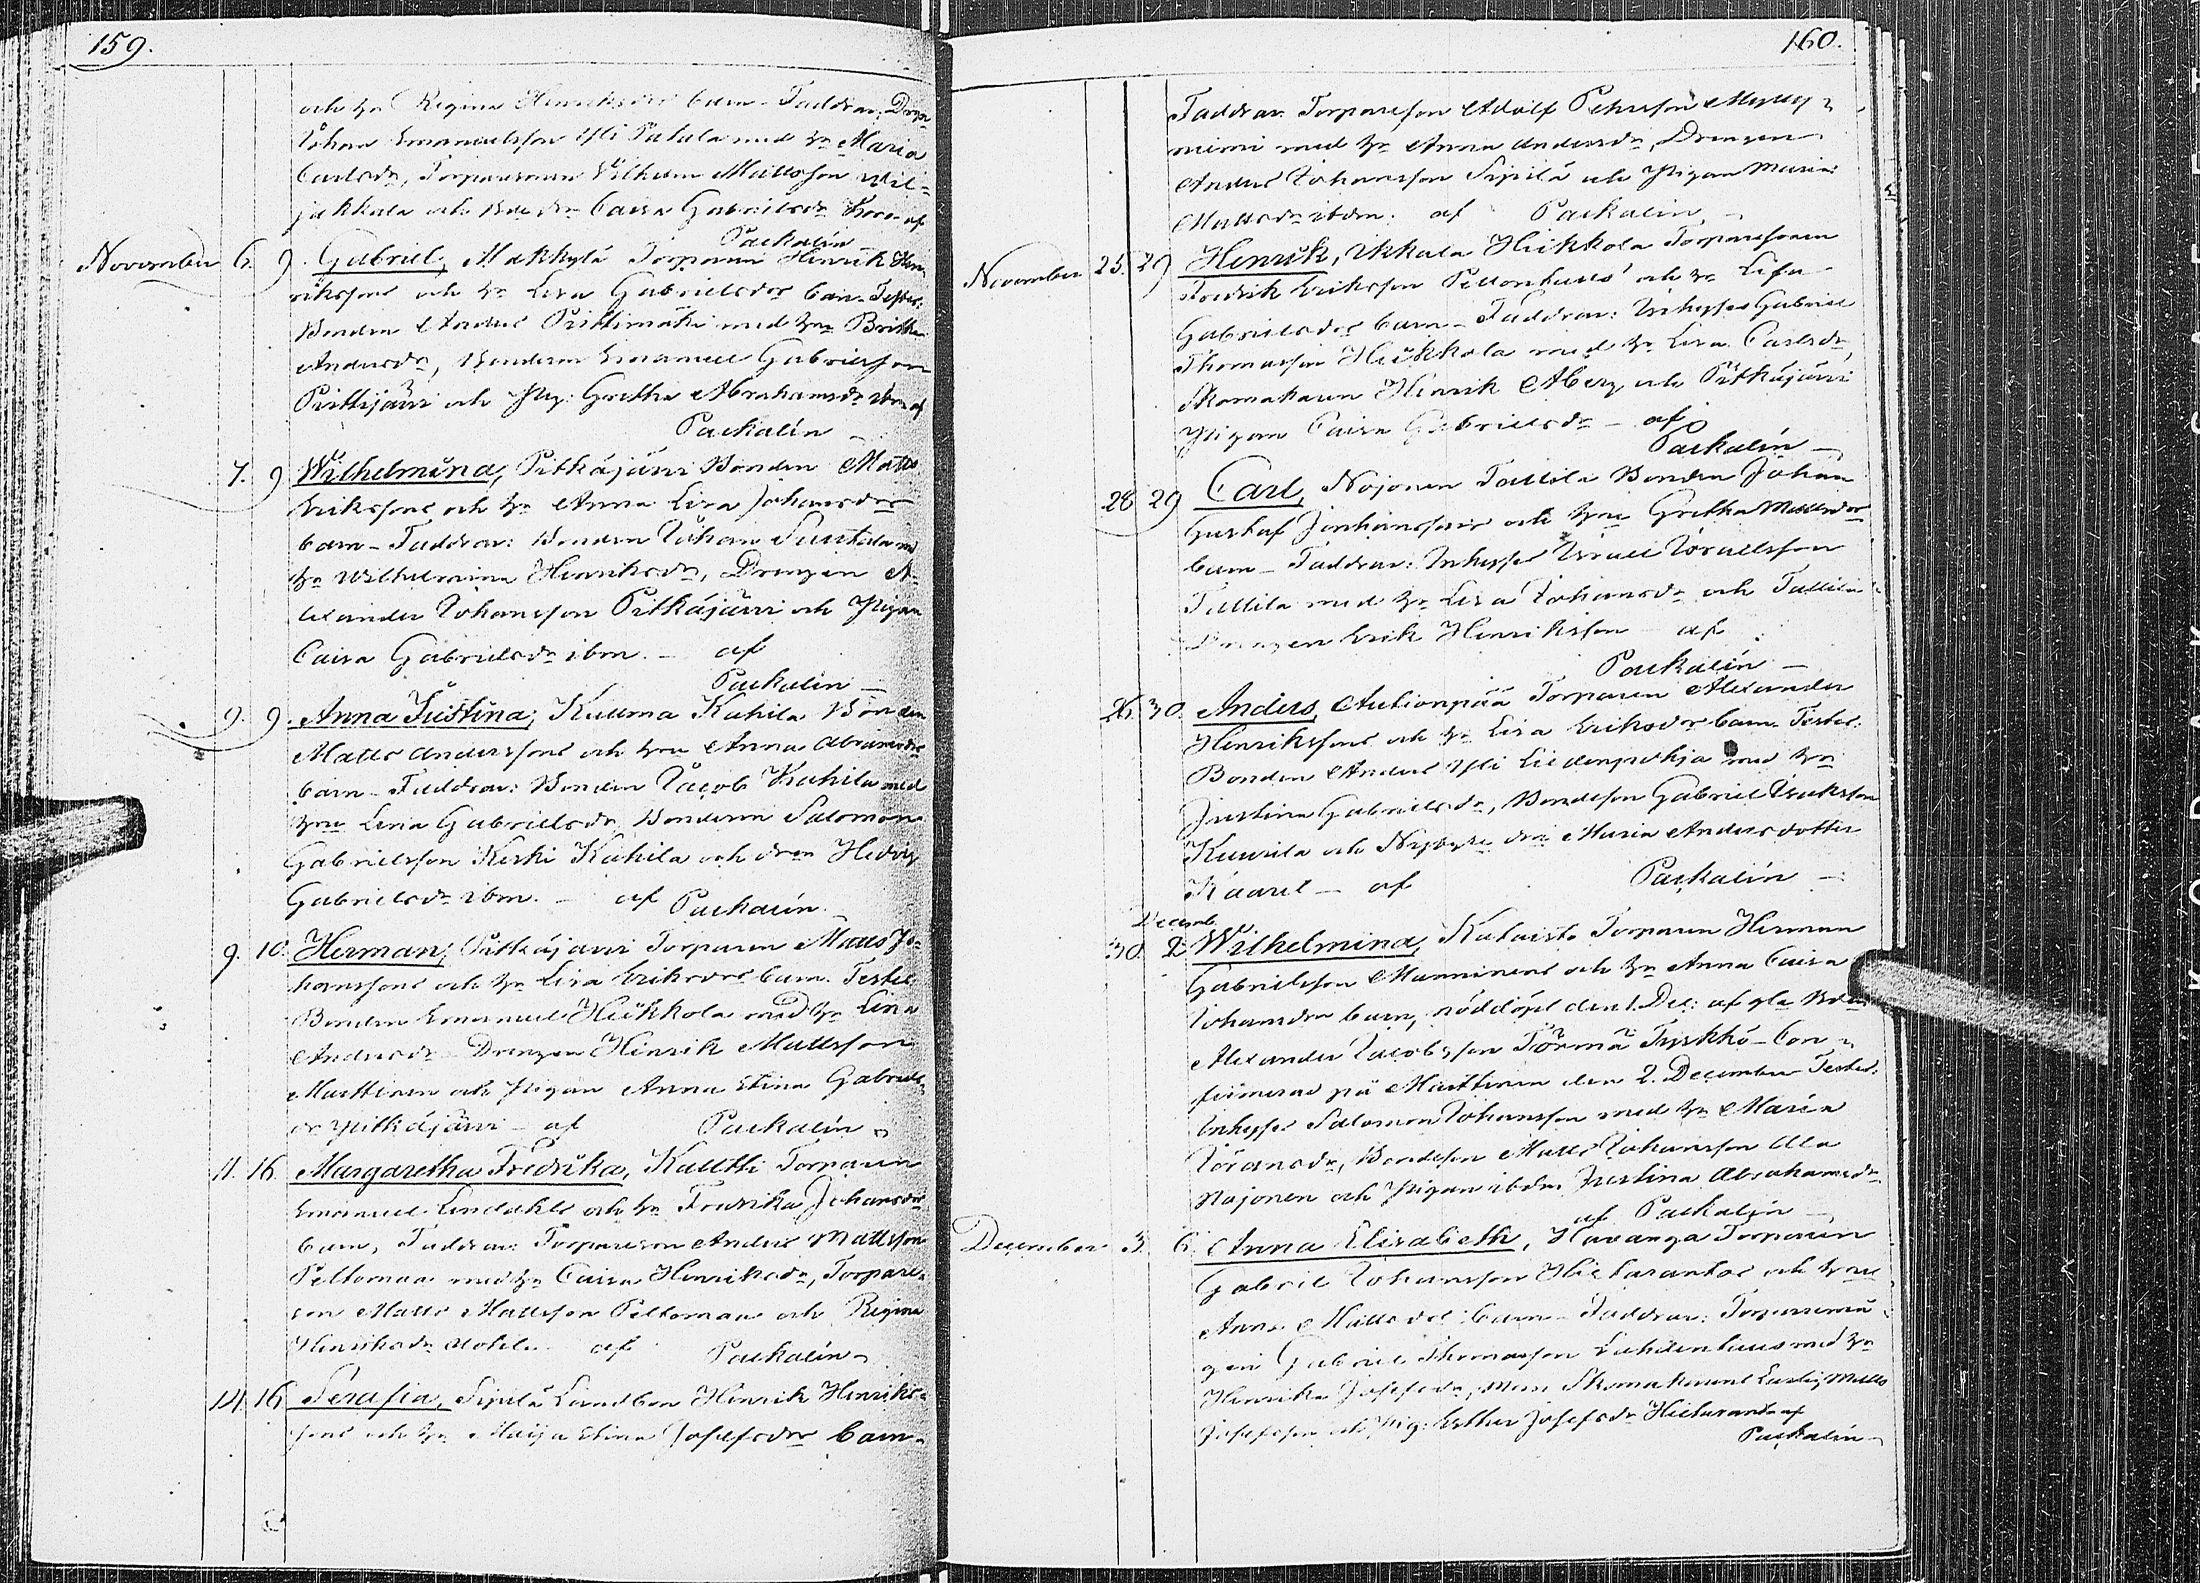 159.
och h:u Regina Henriksdrs barn. Faddrar: Dreng
Johan Emanuelsson Yli Pakala med h:u Maria
Carlsdr, Torparesonen Wilhelm Mattsson Wil-
jakkala och Caisa Gabrielsdr af
Packalén
November 6. 9. Gabriel, Mäkkylä Torparen Henrik Hen-
rikssons och h:u Lisa Gabrielsdrs barn. Testes:
Bonden Anders Prittimäki med h:u Britha
Andersdr, Bondeson Emanuel Gabrielsson
Prittijärvi och Pig: Gretha Abrahamsdr ibm af
Packalén
7. 9 Wilhelmina, Pitkäjärvi Bonden Matts
Erikssons och h:u Anna Lisa Johansdrs
barn. Faddrar: Bonden Johan md
h:u Wilhelmina Henriksdr, Drengen A-
lexander Johansson Pitkäjärvi och Pigan
Caisa Gabrielsdr ibm. af
Packalén
9. 9. Anna Justina, Kuhila Bonden
Matts Anderssons och h:u Anna Abramsdrs
barn. Faddrar: Bonden Jacob Kuhila med
h:u Lena Gabrielsdr Bondeson Salomon
Gabrielsson Keski Kuhila och Hedvig
Gabrielsdr ibm. af Packalén
9. 10. Herman, Pitkäjärvi Torparen Matts Jo-
hanssons och h:u Lisa Eriksdrs barn. Testes:
Bonden Emanuel Heikkola med h:u Lena
Andersdr Drengen Henrik Mattsson
Marttinen och Pigan Anna Stina Gabriels-
dr Pitkäjärvi af Packalén
11. 16. Margaretha Fredrika, Torparen
Emanuel Lindahls och h:u Fredrika Johansdrs
barn, Faddrar: Torpareson Anders Mattsson
Peltomaa med h:u Caisa Henriksdr, Torpare-
son Matts Mattsson Peltomaa och Regina
Henriksdr af Packalén
14. 16 Serafia, Sipilä Landbon Henrik Henriks-
sons och h:u Maija Stina Josefsdrs barn.
160.
Faddrar Torpareson Adolf Pehrsson Mylly-
niemi med h:u Anna Andersdr, Drengen
Anders Johansson Sipilä och Pigan Maria
Mattsdr ibdm. af Packalén
November 25. 29 Henrik, Ikkala Heikkola Torparesonen
Fredrik Eriksson Peltonhuis' och h:u Lisa
Gabrielsdrs barn. Faddrar: Inhyses Gabriel
Thomasson Heikkola med h:u Lisa Carlsdr,
Skomakaren Henrik Åberg och Pitkäjärvi
Pigan Caisa Gabrielsdr af
Packalén
28 29 Carl, Nojonen Tallila Bonden Johan
Gustaf Johanssons och h:u Gretha Mattsdrs
barn. Faddrar: Inhyses Israel Israelsson
Tallila med h:u Lisa Johansdr och Tallila
Drengen Erik Henriksson af
Packalén
26. 30. Anders, Aution pää Torparen Alexander
Henrikssons och h:u Lisa Eriksdrs barn. Testes:
Bonden Anders Yli Liedenpohja med h:u
Justina Gabrielsdr, Bondeson Gabriel Isaksson
Kuusila och Maria Andersdotter
Kaarel af Packalén
Decemb.
30. 2 Wilhelmina, Kataisto Torparen Herman
Gabrielsson Manninens och h:u Anna Caisa
Johansdrs barn, nöddöpt den 1. Dec: af gla
Alexander Jacobsson Törmä Tyrkkö. Con-
firmerad på Marttinen den 2. December Testes:
Inhyses Salomon Johansson med h:u Maria
Göransdr, Bondeson Matts Johansson Ala
Nojonen och Pigan ibdm Justina Abrahamsdr
af Packalén
December 3. 6. Anna Elisabeth, Havanga Torparen
Gabriel Johansson Hietarantas och h:u
Anna Mattsdrs barn. Faddrar: Torparemå-
gen Gabriel Thomasson Lahdenhuis med h:u
Henrika Josefsdr, Skomakaren Matts
Josefsson och Pig: Esther Josefsdr Hietaranta af
Packalén